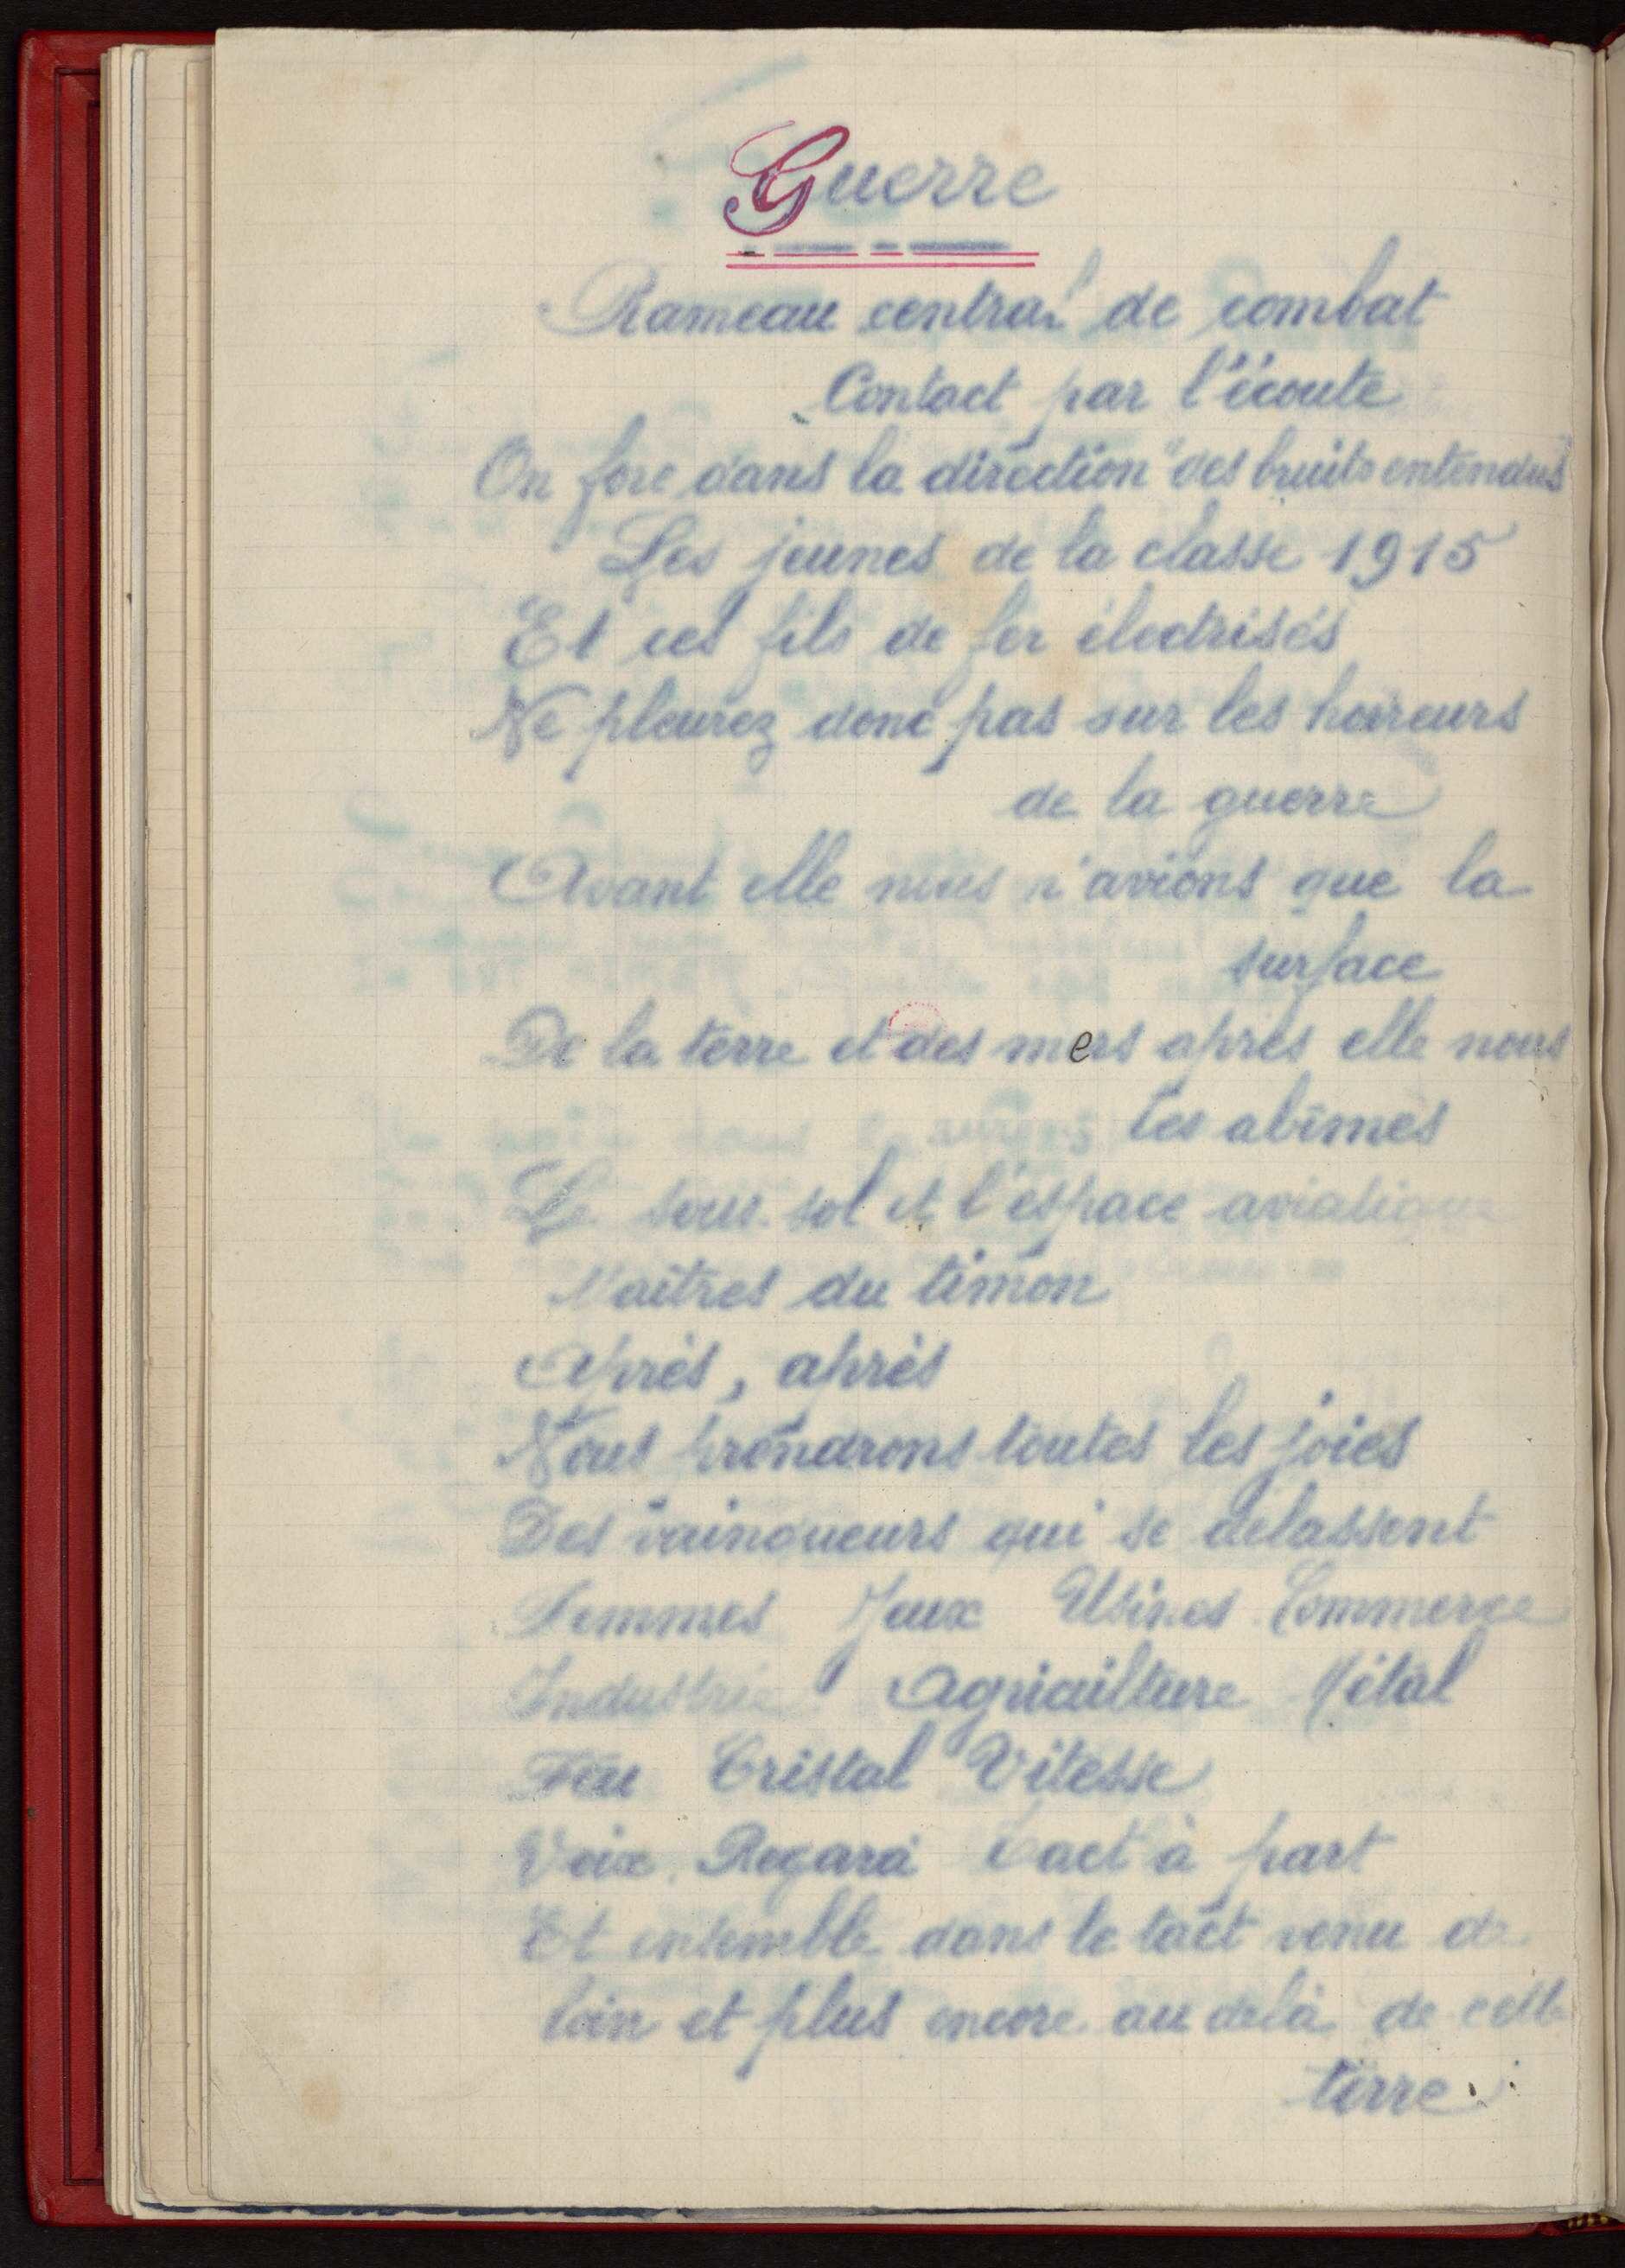 Guerre
Rameau central de combat
Contact par l'écoute
On fore dans la direction "des bruits entendus"
Les jeunes de la classe 1915
Et ces fils de fer électrisés
Ne pleurez donc pas sur les horreurs
de la guerre
Avant elle nous n'avions que la
surface
De la terre et des mers après elle nous
les abîmes
Le sous-sol et l'espace aviatique
Maîtres du timon
Après, après
Nous prendrons toutes les joies
Des vainqueurs qui se délassent
Femmes Jeux Usines Commerce
Industrie Agriculture Métal
Feu Cristal Vitesse
Voix Regard Tact à part
Et ensemble dans le tact venu de
loin et plus encore au delà de cette
terre